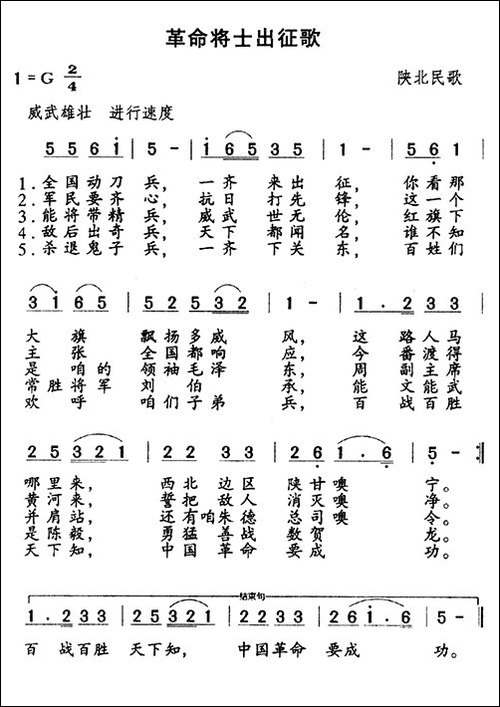 革命将士出征歌
1=G 2/4
陕北民歌
威武雄壮 进行速度
5 5 6 1 | 5 - | 1 6 5 3 5 | 1 - | 5 6 1 |
1.全国动刀 兵， 一齐 来出 征， 你看那
2.军民要齐 心， 抗日 打先 锋， 这一个
3.能将带精 兵， 威武 世无 伦， 红旗下
4.敌后出奇 兵， 天下 都闻 名， 谁不知
5.杀退鬼子 兵， 一齐 下关 东， 百姓们
3 1 6 5 | 5 2 5 3 2 | 1 - | 1 . 2 3 3 |
大 旗 飘扬多威 风， 这 路人马
主 张 全国都响 应， 今 番渡主得
是 咱的 领袖毛泽 东， 周 副主席
常 胜将军 刘 伯 承， 能 文能武
欢 呼 咱们子弟 兵， 百 战百胜
2 5 3 2 1 | 2 2 3 3 | 2 6 1 . 6 | 5 - :|
哪里来， 西北边区 陕甘噢 宁。
黄河来， 誓把敌人 消灭噢 净。
并肩站， 还有咱朱德 总司噢 令。
是陈毅， 勇猛善战 数贺 龙。
天下知， 中国革命 要成 功。
结束句
1 . 2 3 3 | 2 5 3 2 1 | 2 2 3 3 | 2 6 1 . 6 | 5 - |
百 战百胜 天下知， 中国革命 要成 功。